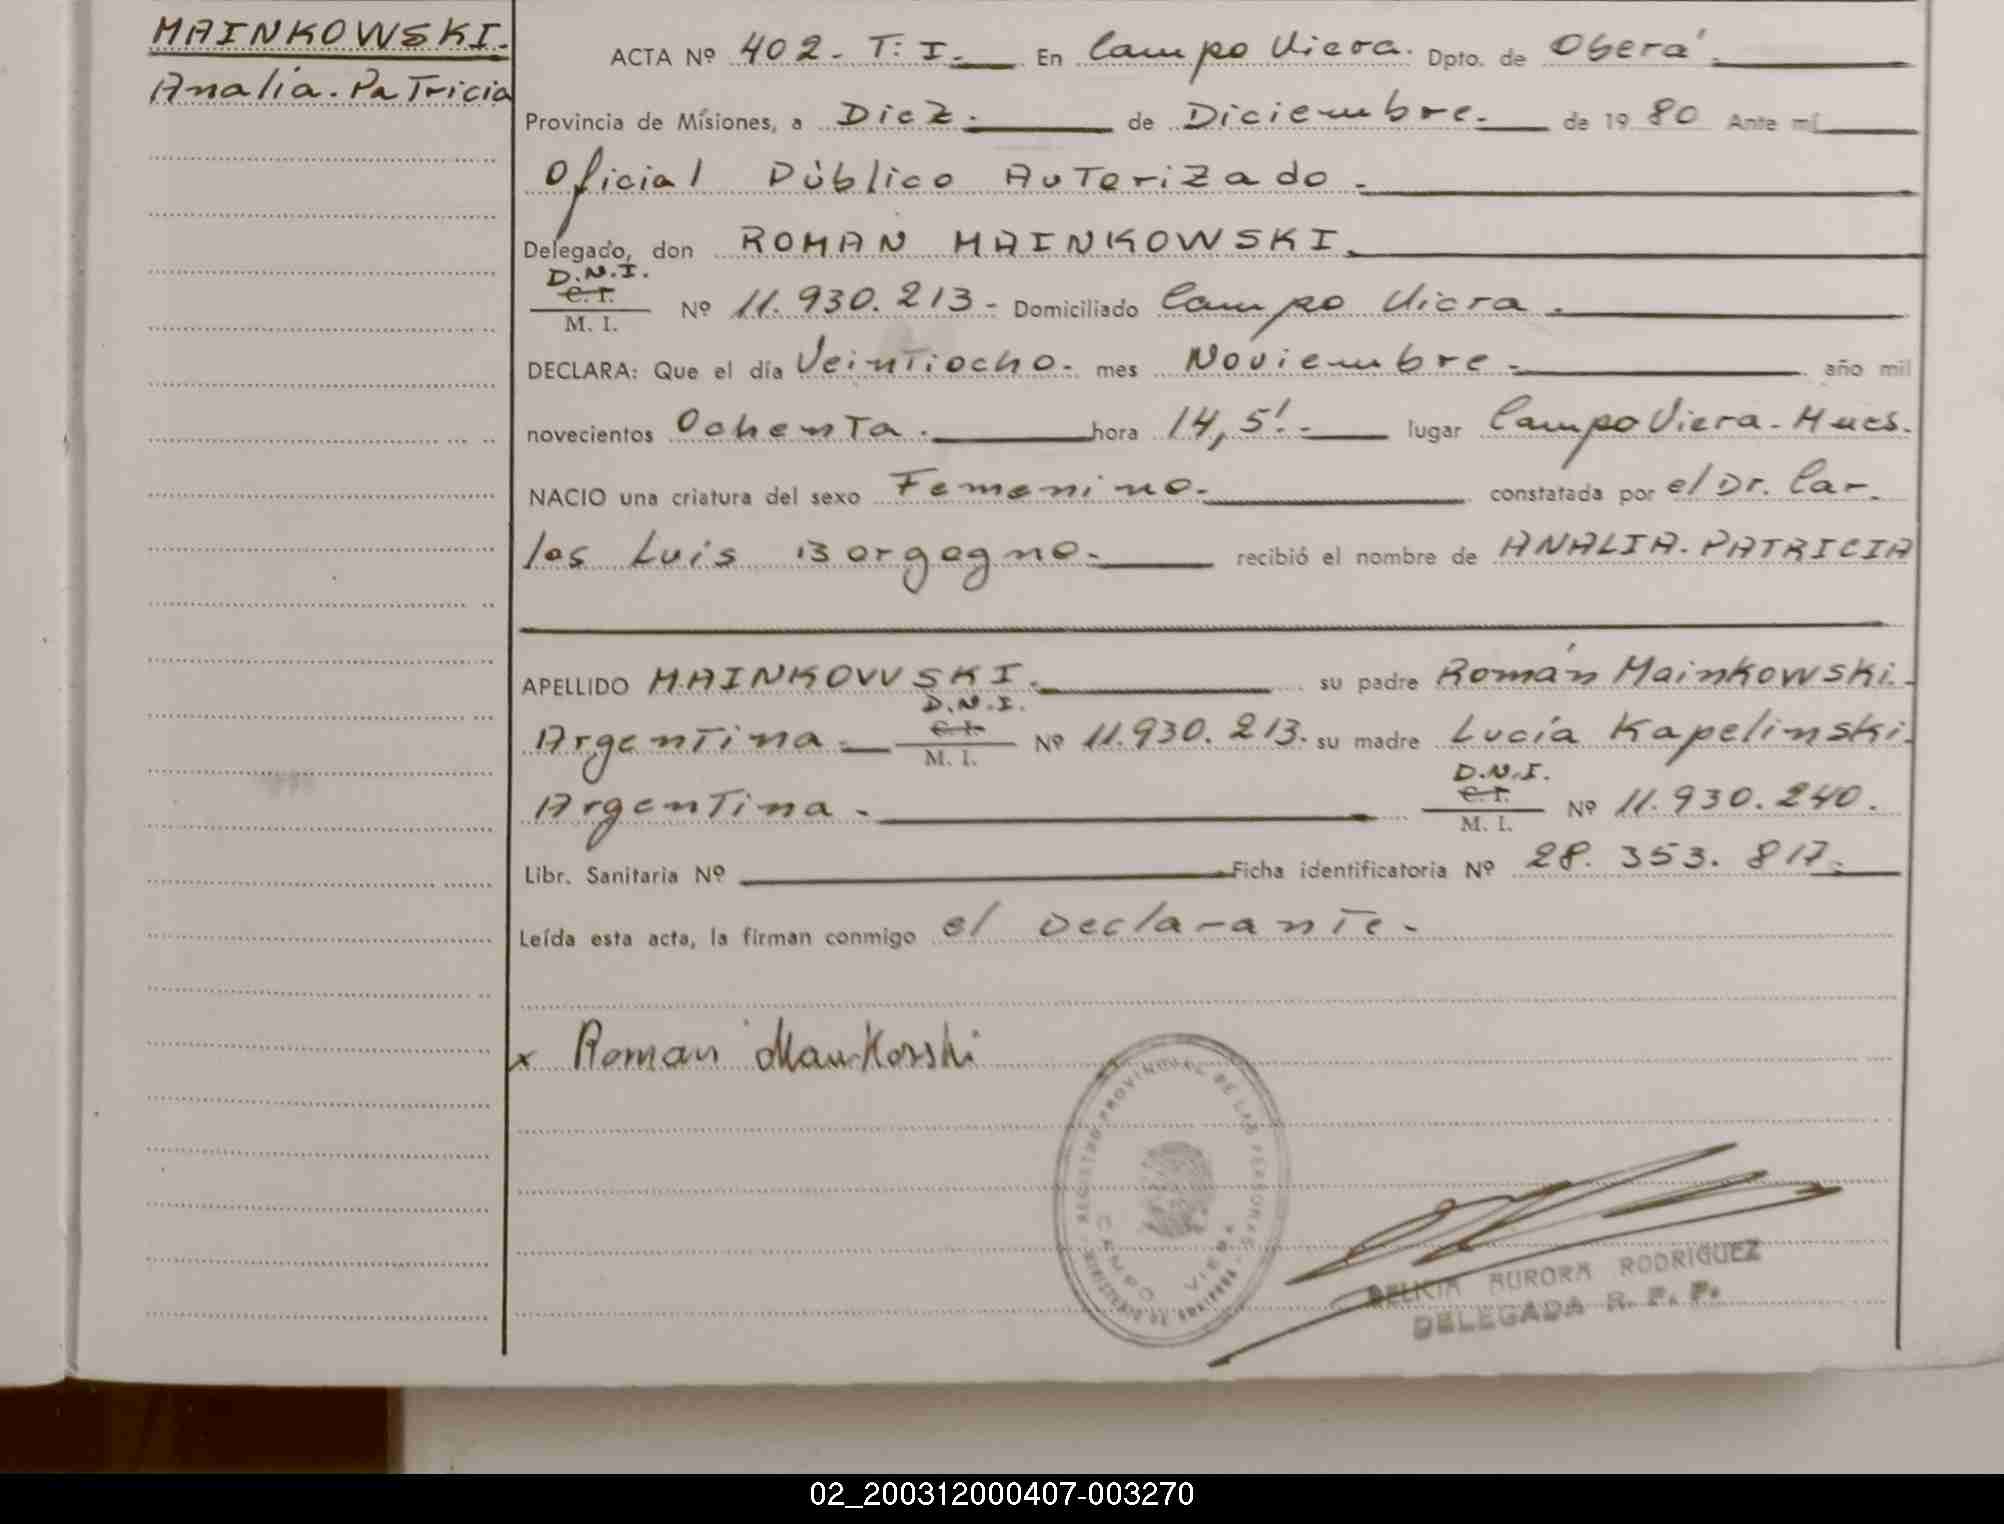 MAINKOWSKI.
Analía. Patricia
ACTA Nº 402. T: I. En Campo Viera. Dpto. de Oberá.
Provincia de Misiones, a Diez. de Diciembre. de 19 80 Ante mí
Oficial Público Autorizado.
Delegado, don ROMAN MAINKOWSKI.
D.N.I.
C. I.
M. I. Nº 11.930.213- Domiciliado Campo Viera.
DECLARA: Que el día Veintiocho. mes Noviembre. año mil
novecientos Ochenta. hora 14,5'. lugar Campo Viera-Mnes.
NACIO una criatura del sexo Femenino. constatada por el Dr. Car-
los Luis Borgogno. recibió el nombre de ANALIA. PATRICIA
APELLIDO MAINKOWSKI. su padre Román Mainkowski.
D.N.I.
Argentina. C. I. M. I. Nº 11.930.213. su madre Lucía Kapelinski.
D.N.I.
Argentina. C. I. M. I. Nº 11.930.240.
Libr. Sanitaria Nº Ficha identificatoria Nº 28. 353. 817.
Leída esta acta, la firman conmigo el Declarante.
x Roman
REGISTRO PROVINCIAL DE LAS PERSONAS
CAMPO VIERA
MINISTERIO DE
DELICIA AURORA RODRIGUEZ
DELEGADA R. P. P.
02_200312000407-003270